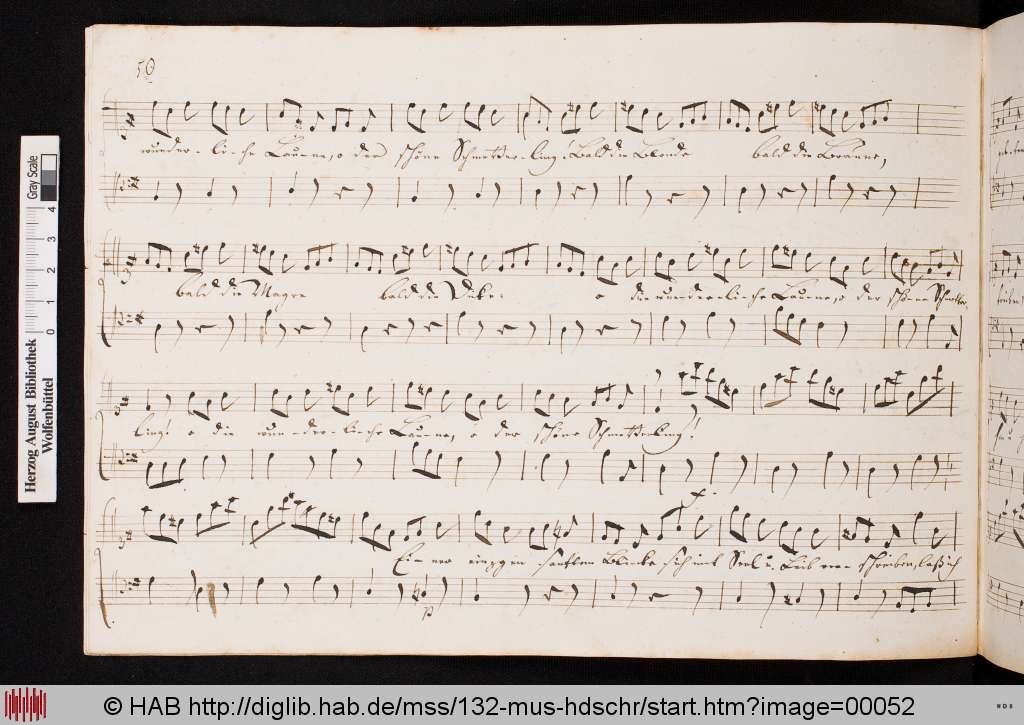 50
wunder-li-che Laune, o der schöne Schmetter-ling! Bald die Blonde bald die Braune,
bald die Magre bald die Dicke: o die wunder-li-che Laune, o der schöne Schmetter
ling! o die wun-der-li-che Laune, o der schöne Schmetterling!
f.
Ei-ner einzgen sanftem Blicke sich mit Seel u. Leib ver-schreiben, laß ich
p
Herzog August Bibliothek
Wolfenbüttel
0 1 2 3 4
Gray Scale
© HAB http://diglib.hab.de/mss/132-mus-hdschr/start.htm?image=00052